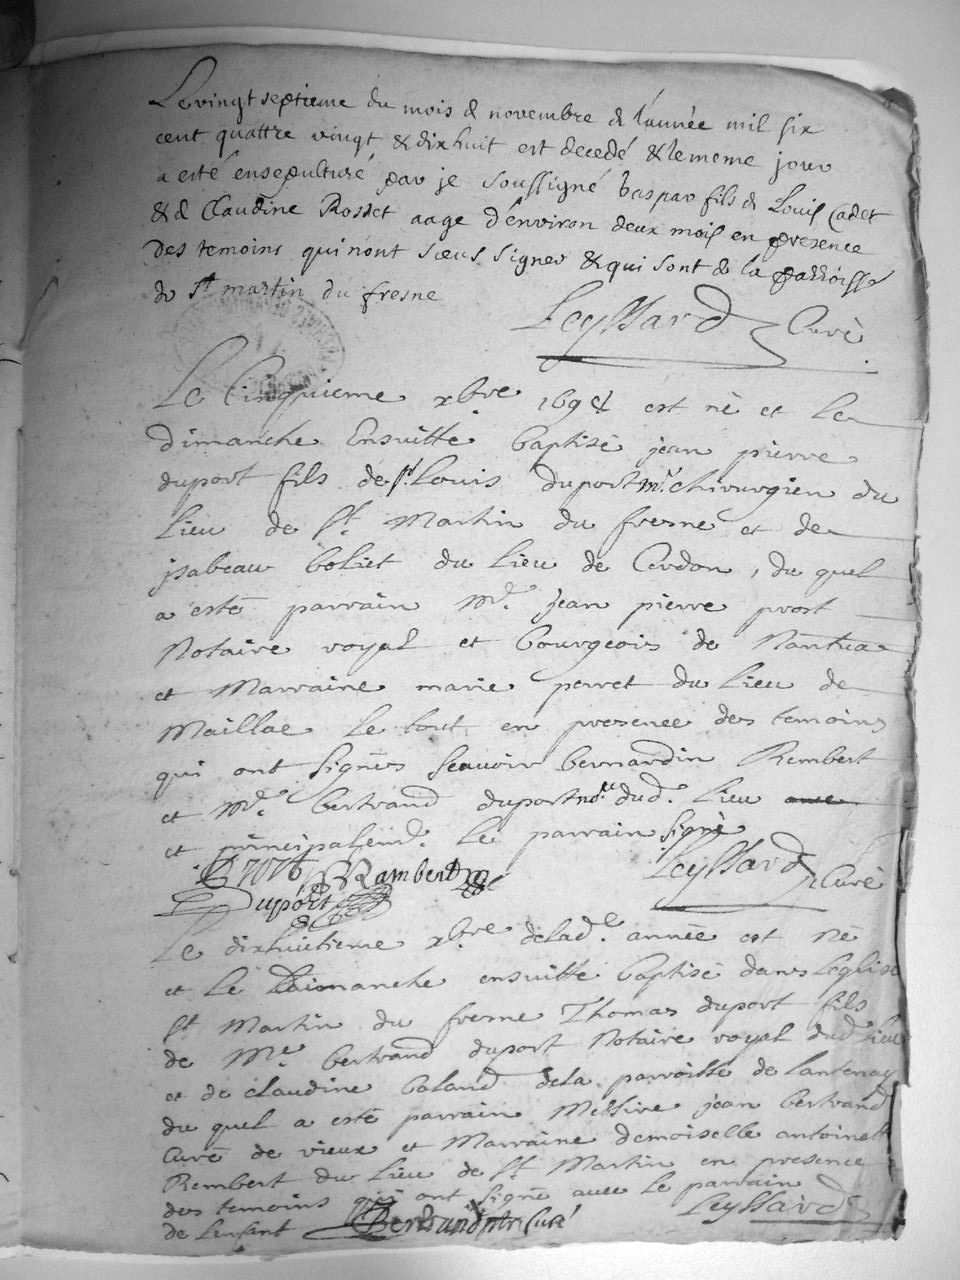 Le vingt septieme du mois d novembre d l'année mil six
cent quattre vingt & dixhuit est decedé & le meme jour
a esté ensepulturé par je soussigné Gaspar fils d Louis Cadet
& d Claudine Rosset aage d'environ deux mois en presence
des temoins qui n'ont sceus signer & qui sont d la parroisse
de St martin du fresne
Leyssard Curé
Le Cinquieme xbre 1698 est né et le
dimanche Ensuitte baptisé jean pierre
duport fils de Sr Louis duport Mr chirurgien du
Lieu de St Martin du fresne et de
jsabeau boliet du Lieu de Cerdon, du quel
a esté parrain Me jean pierre prost
Notaire royal et bourgeois de Nantua
et Marraine marie perret du Lieu de
Maillac Le tout en presence des temoins
qui ont signés scauoir bernardin Rembert
et Me bertrand duport nore dud. Lieu
et principalemt Le parrain signé
Prost Rambert
Leyssard Curé
Duport
Le dixhuitieme xbre de lade année est Né
et Le Dimanche ensuitte baptisé dans Leglise
St Martin du fresne Thomas duport fils
de Me bertrand duport Notaire royal dud Lieu
et de claudine baland dela parroisse de Lantenay
du quel a esté parrain Messire jean bertrand
Curé de vieux et Marraine demoiselle antoinette
Rembert du Lieu de St Martin en presence
des temoins qui ont signé auec Le parrain
de Lenfant Bertrand ptre Curé Leyssard